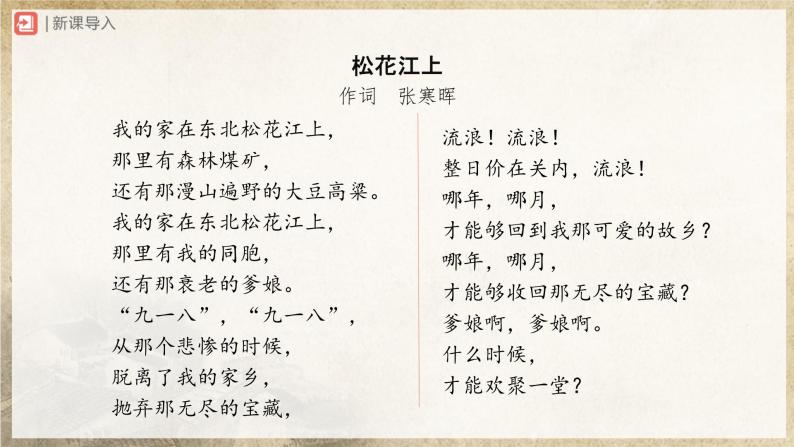 新课导入
松花江上
作词 张寒晖
我的家在东北松花江上，
那里有森林煤矿，
还有那漫山遍野的大豆高粱。
我的家在东北松花江上，
那里有我的同胞，
还有那衰老的爹娘。
“九一八”，“九一八”，
从那个悲惨的时候，
脱离了我的家乡，
抛弃那无尽的宝藏，
流浪！流浪！
整日价在关内，流浪！
哪年，哪月，
才能够回到我那可爱的故乡？
哪年，哪月，
才能够收回那无尽的宝藏？
爹娘啊，爹娘啊。
什么时候，
才能欢聚一堂？